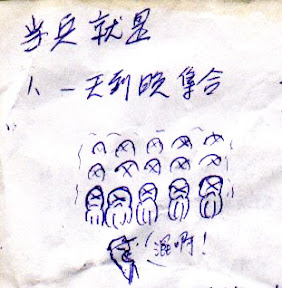 当兵就是
1、一天到晚集合
啊！